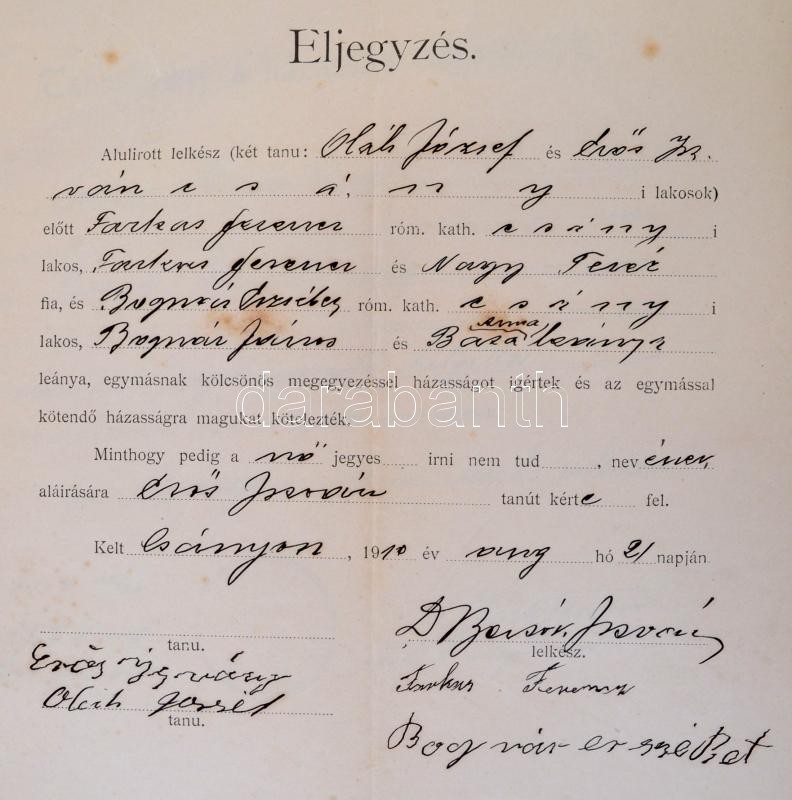 Eljegyzés.
Alulirott lelkész (két tanu: Oláh József és Erős Ist-
ván csány i lakosok)
előtt Farkas Ferencz róm. kath. csány i
lakos, Farkas Ferencz és Nagy Teréz
fia, és Bognár Erzsébet róm. kath. csány i
lakos, Bognár János és Basa Anna
leánya, egymásnak kölcsönös megegyezéssel házasságot igértek és az egymással
kötendő házasságra magukat kötelezték.
darabanth
Minthogy pedig a nő jegyes irni nem tud, nevének
aláirására Erős István tanút kérte fel.
Kelt Csányon, 1910 év aug hó 21 napján
tanu. István
lelkész.
Oláh József Farkas Ferencz
tanu.
Bognár erzséBet